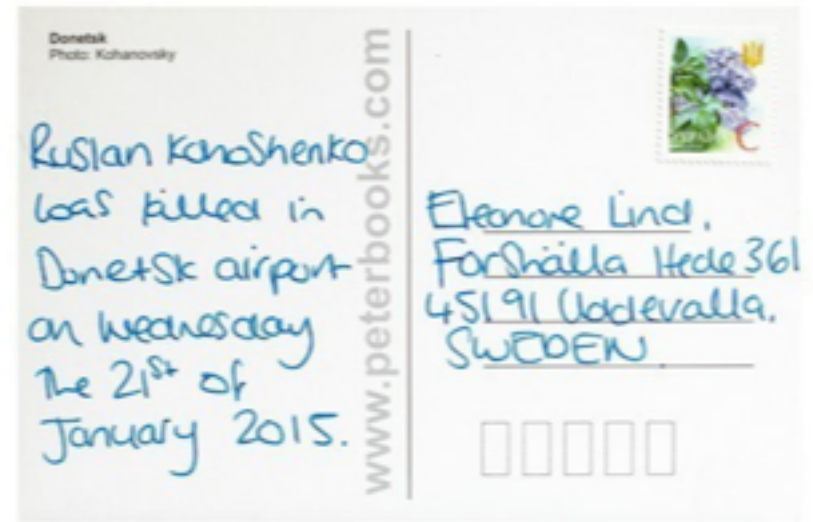 Donetsk
Photo: Kohanovsky
Ruslan Konoshenko
was killed in
Donetsk airport
on Wednesday
the 21st of
January 2015.
www.peterbooks.com
C
Eleonore Lind,
Forshälla Hede 361
45191 Uddevalla.
SWEDEN